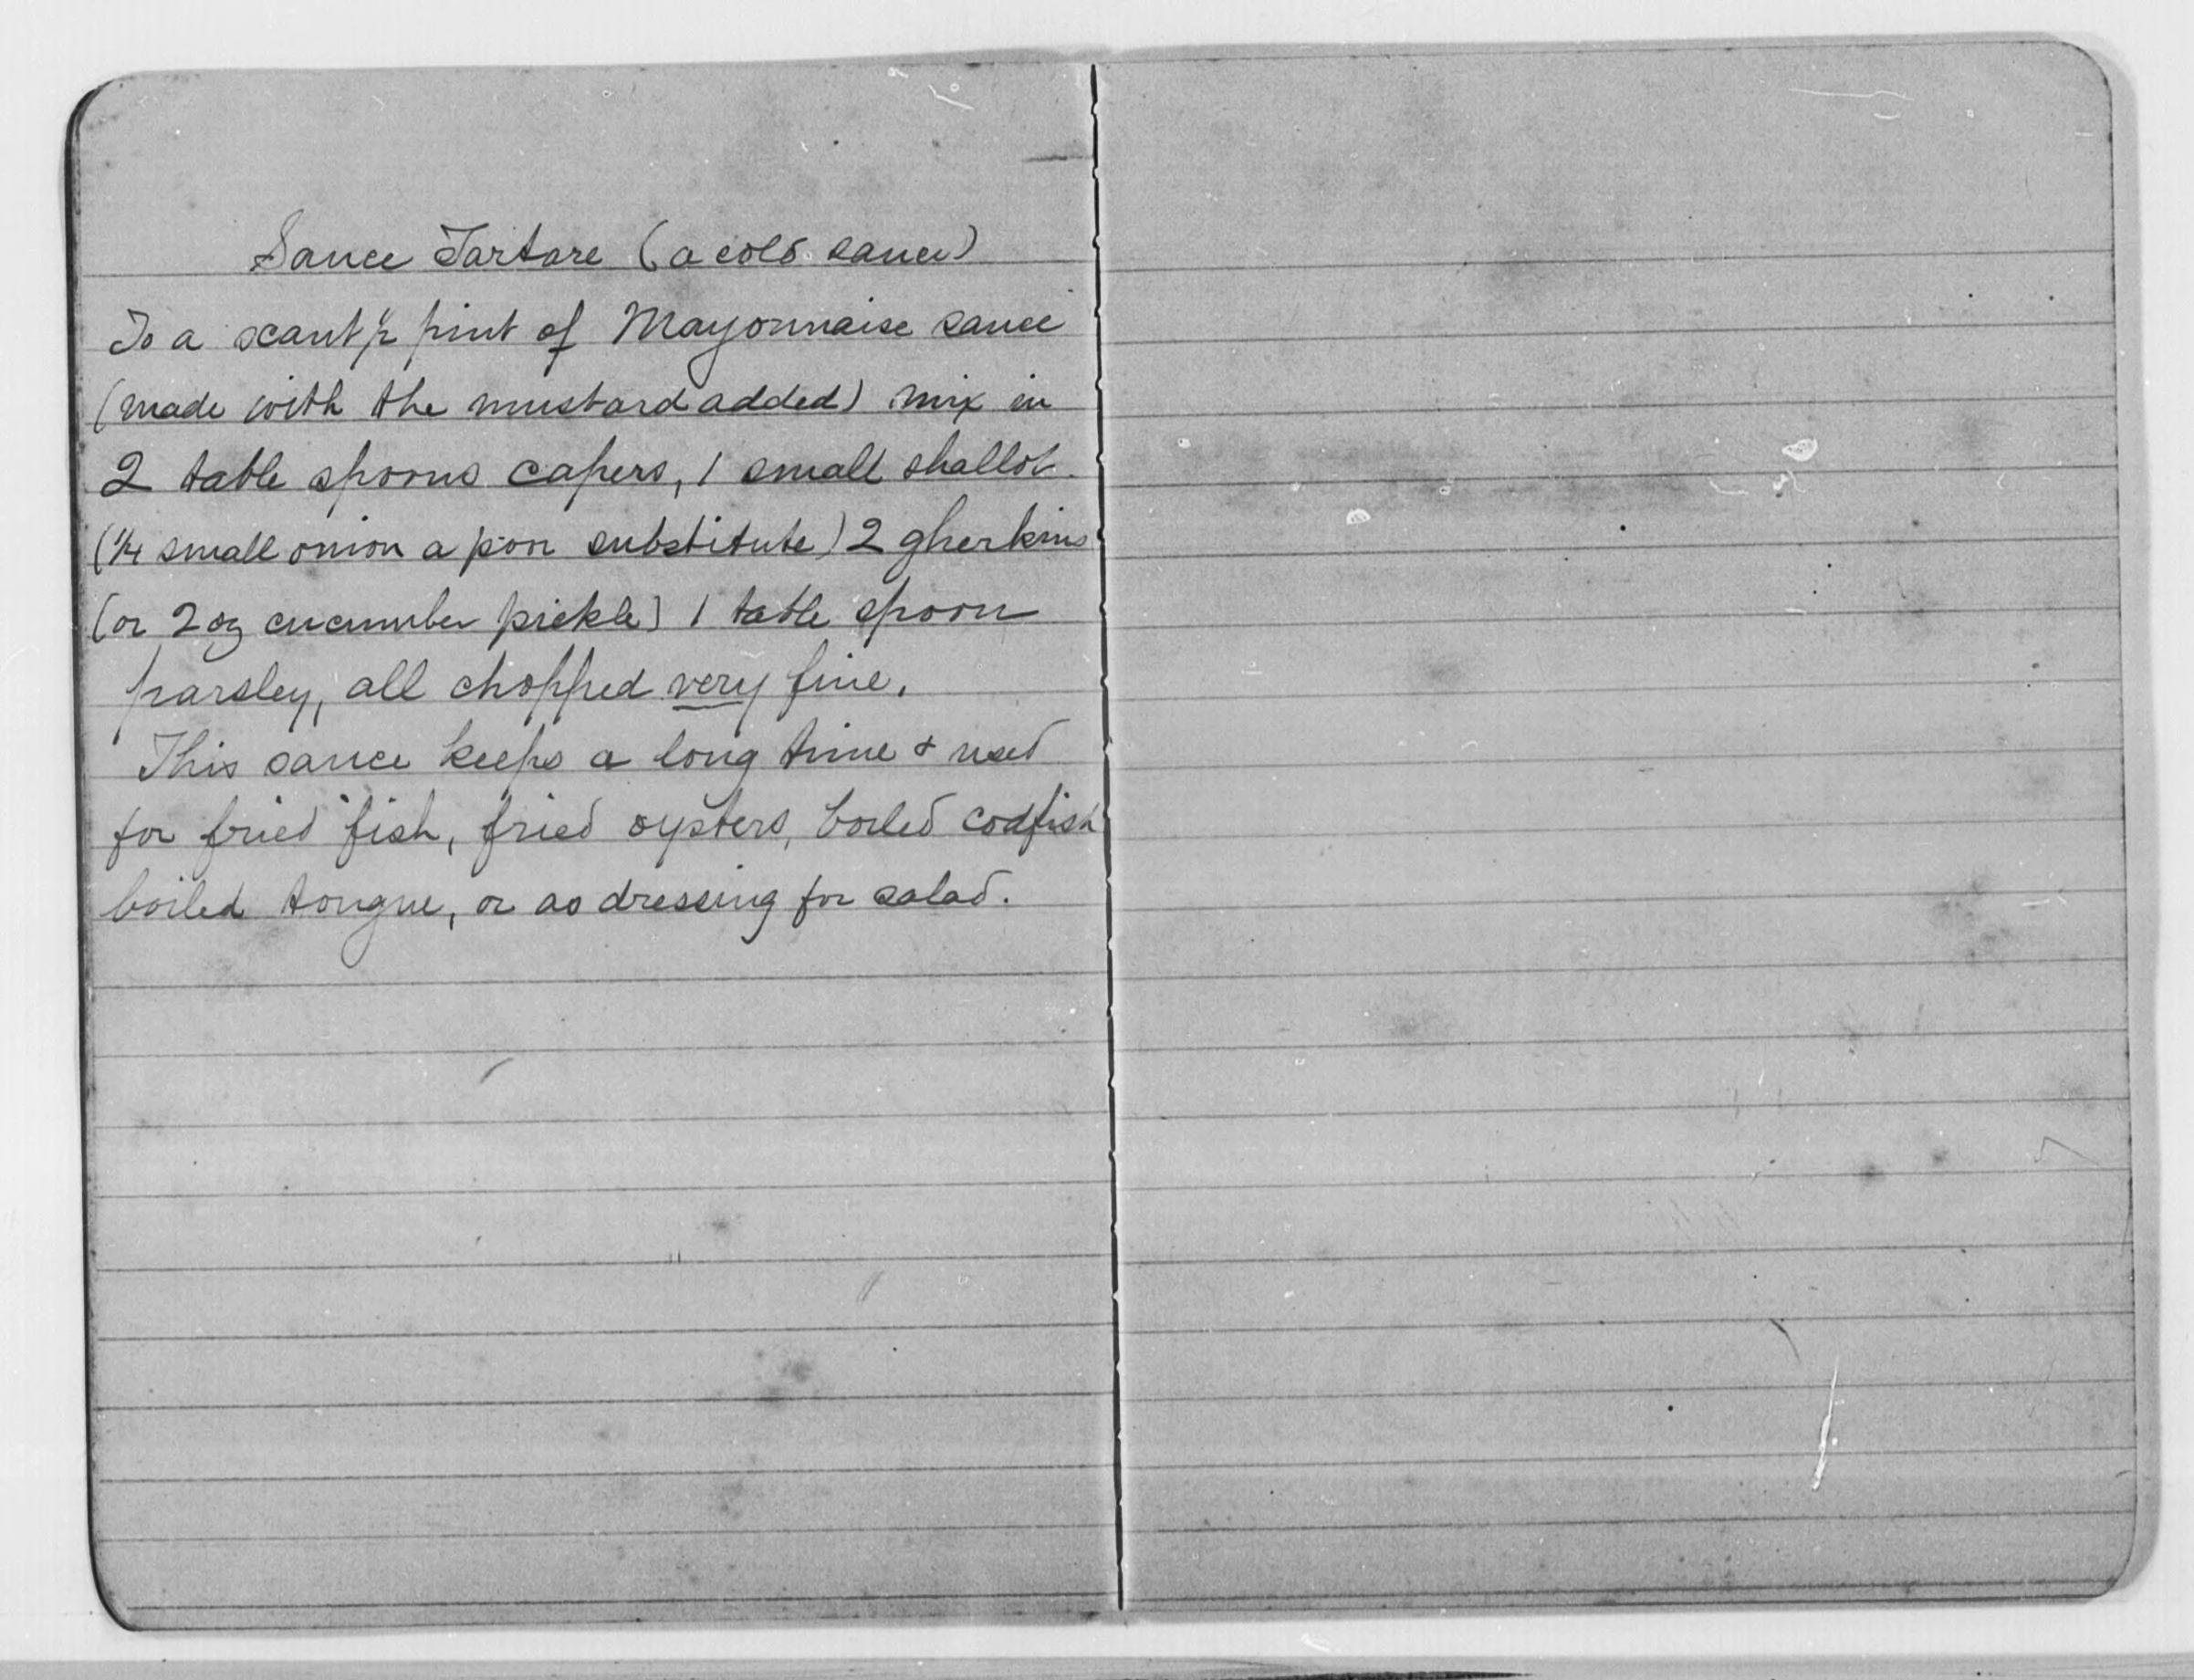 Sauce Tartare (a cold sauce)
To a scant 1/2 pint of Mayonnaise sauce
(made with the mustard added) mix in
2 table spoons capers, 1 small shallot
(1/4 small onion a poor substitute) 2 gherkins
(or 2 oz cucumber pickle) 1 table spoon
parsley, all chopped very fine.
This sauce keeps a long time & used
for fried fish, fried oysters, boiled codfish
boiled tongue, or as dressing for salad.